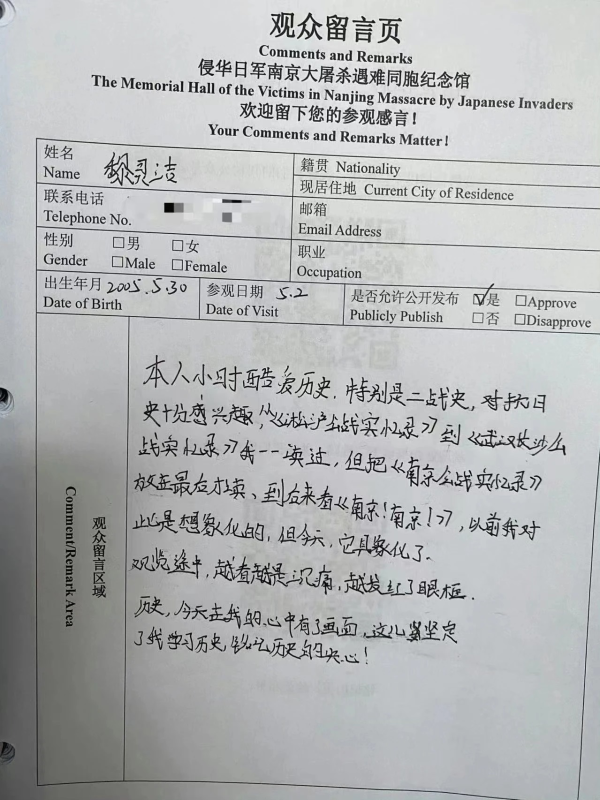 观众留言页
Comments and Remarks
侵华日军南京大屠杀遇难同胞纪念馆
The Memorial Hall of the Victims in Nanjing Massacre by Japanese Invaders
欢迎留下您的参观感言！
Your Comments and Remarks Matter!
姓名
Name 黎灵洁
籍贯 Nationality
现居住地 Current City of Residence
联系电话
Telephone No.
邮箱
Email Address
性别 □男 □女
Gender □Male □Female
职业
Occupation
出生年月 2005.5.30
Date of Birth
参观日期 5.2
Date of Visit
是否允许公开发布 ☑是 □Approve
Publicly Publish □否 □Disapprove
观众留言区域
Comment/Remark Area
本人小时酷爱历史，特别是二战史，对抗日
史十分感兴趣，从《淞沪会战实忆录》到《武汉长沙会
战实忆录》我一一读过，但把《南京会战实忆录》
放在最后才读、到后来看《南京！南京！》，以前我对
此是想象化的，但今天，它具象化了。
观览途中，越看越是沉痛，越发红了眼眶．
历史，今天在我的心中有了画面，这儿坚定
了我学习历史，铭记历史的决心！